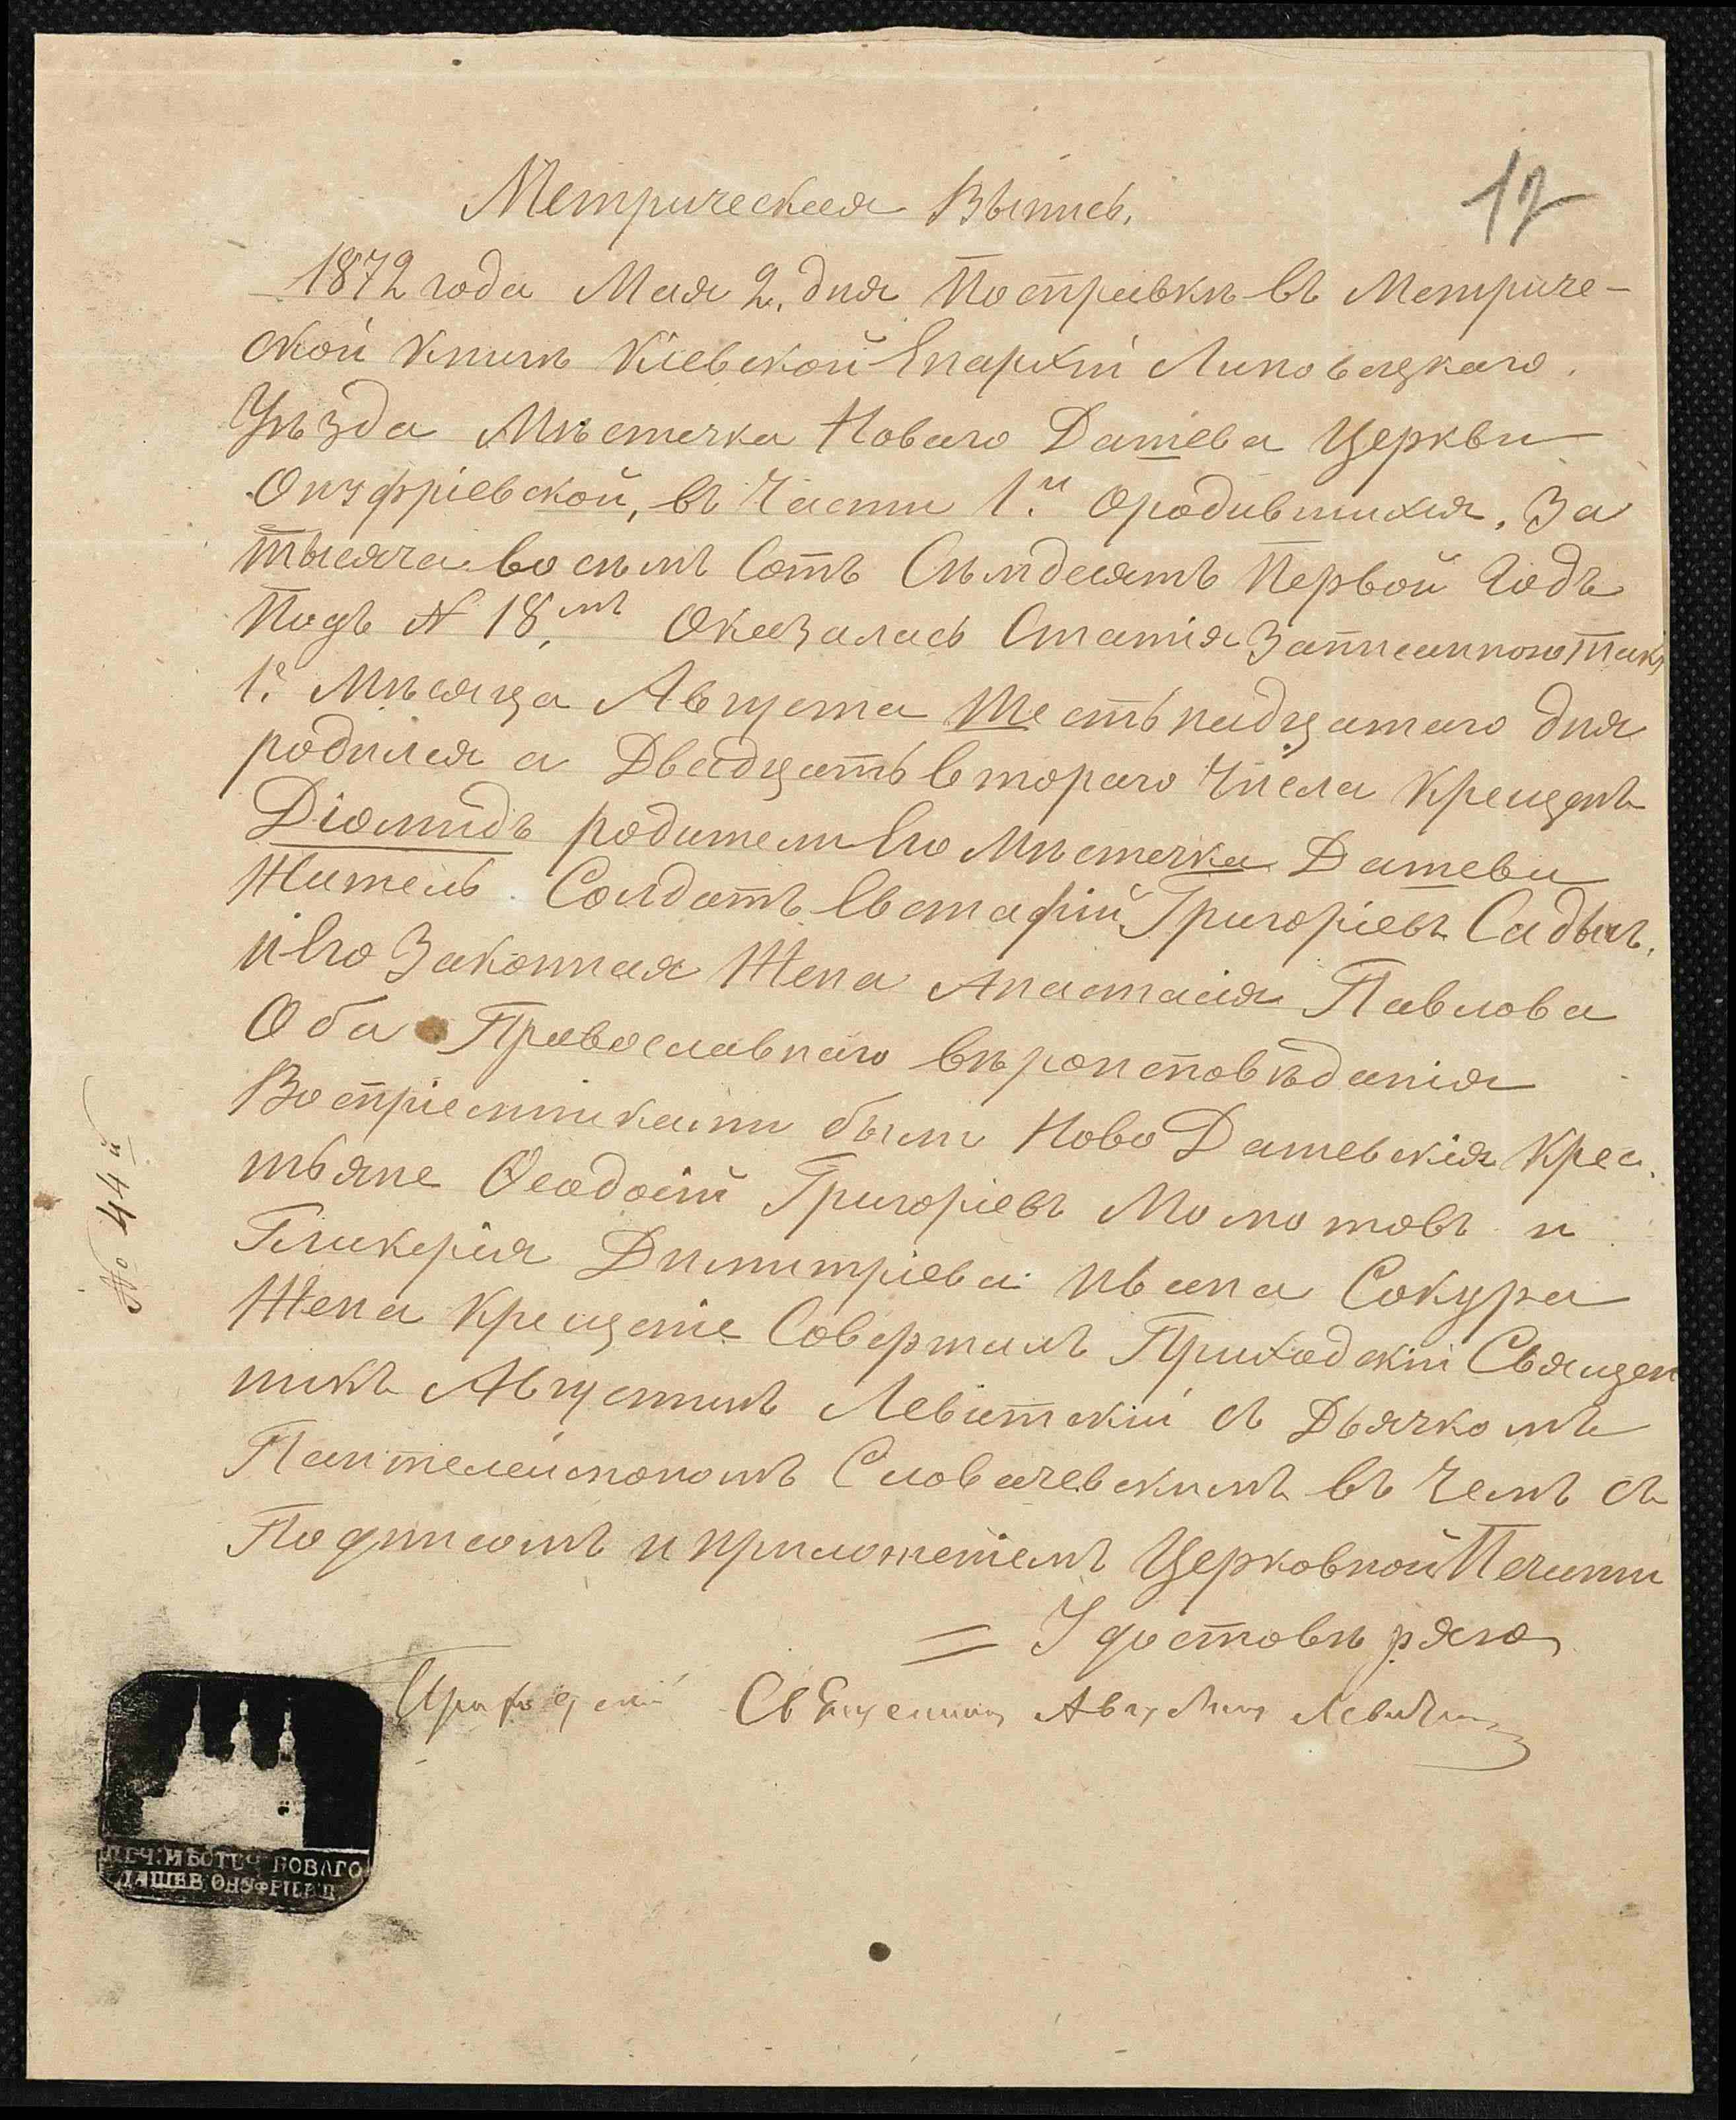 Метрическая Выпись.
12
1872 года Мая 2. дня по справкѣ въ Метриче-
ской книгѣ Кіевской Епархіи Липовецкаго
Уѣзда Мѣстечка Новаго Дашева Церкви
Онуфріевской, въ Части 1.й ородившихся, За
тысяча восемь Сотъ Семдесятъ Первой Годъ
Подъ № 18.мъ Оказалась Статія Записанною такъ
1.е Мѣсяца Августа Шестьнадцатаго дня
родился а Двадцать втораго Числа крещенъ
Діомидъ родители Его Мѣстечка Дашева
Житель Солдатъ Евстафій Григоріевъ
и Его Законная Жена Анастасія Павлова
Оба Православнаго вѣроисповѣданія
Воспріемниками были Ново Дашевскія Крес
тьяне Ѳеодосій Григоріевъ и
Гликерія Димитріева Ивана Сокура
Жена крещеніе Совершилъ Приходскій Священ
никъ Августинъ Левитскій съ Дьячкомъ
Пантелеимономъ Словачевскимъ въ чемъ съ
Подписомъ и приложеніемъ Церковной Печати
= Удостовѣряю
Приходскій Священникъ Августинъ Левитскій
№ 44 й
ПЕЧ. МѢСТЕЧ НОВАГО
ДАШЕВ. ОНУФРІЕВ Ц